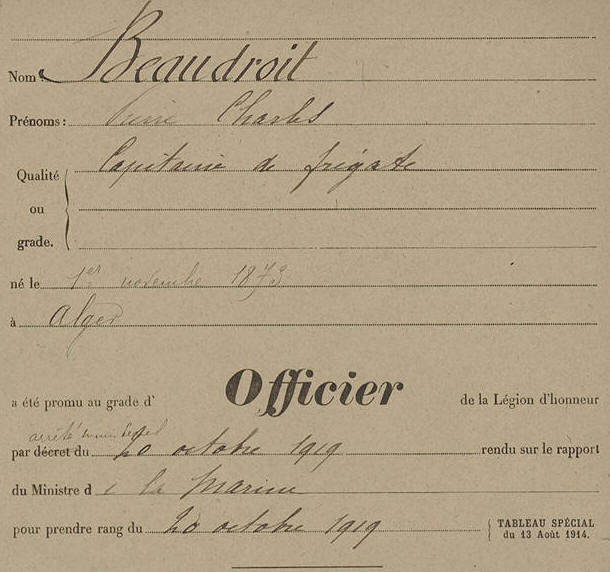 Nom: Beaudroit
Prénoms: Pierre Charles
Qualité ou grade. Capitaine de frégate
né le 1er novembre 1873
à Alger
a été promu au grade d' Officier de la Légion d'honneur
arrêté ministériel
par décret du 20 octobre 1919 rendu sur le rapport
du Ministre de la Marine
pour prendre rang du 20 octobre 1919 { TABLEAU SPÉCIAL
du 13 Août 1914.